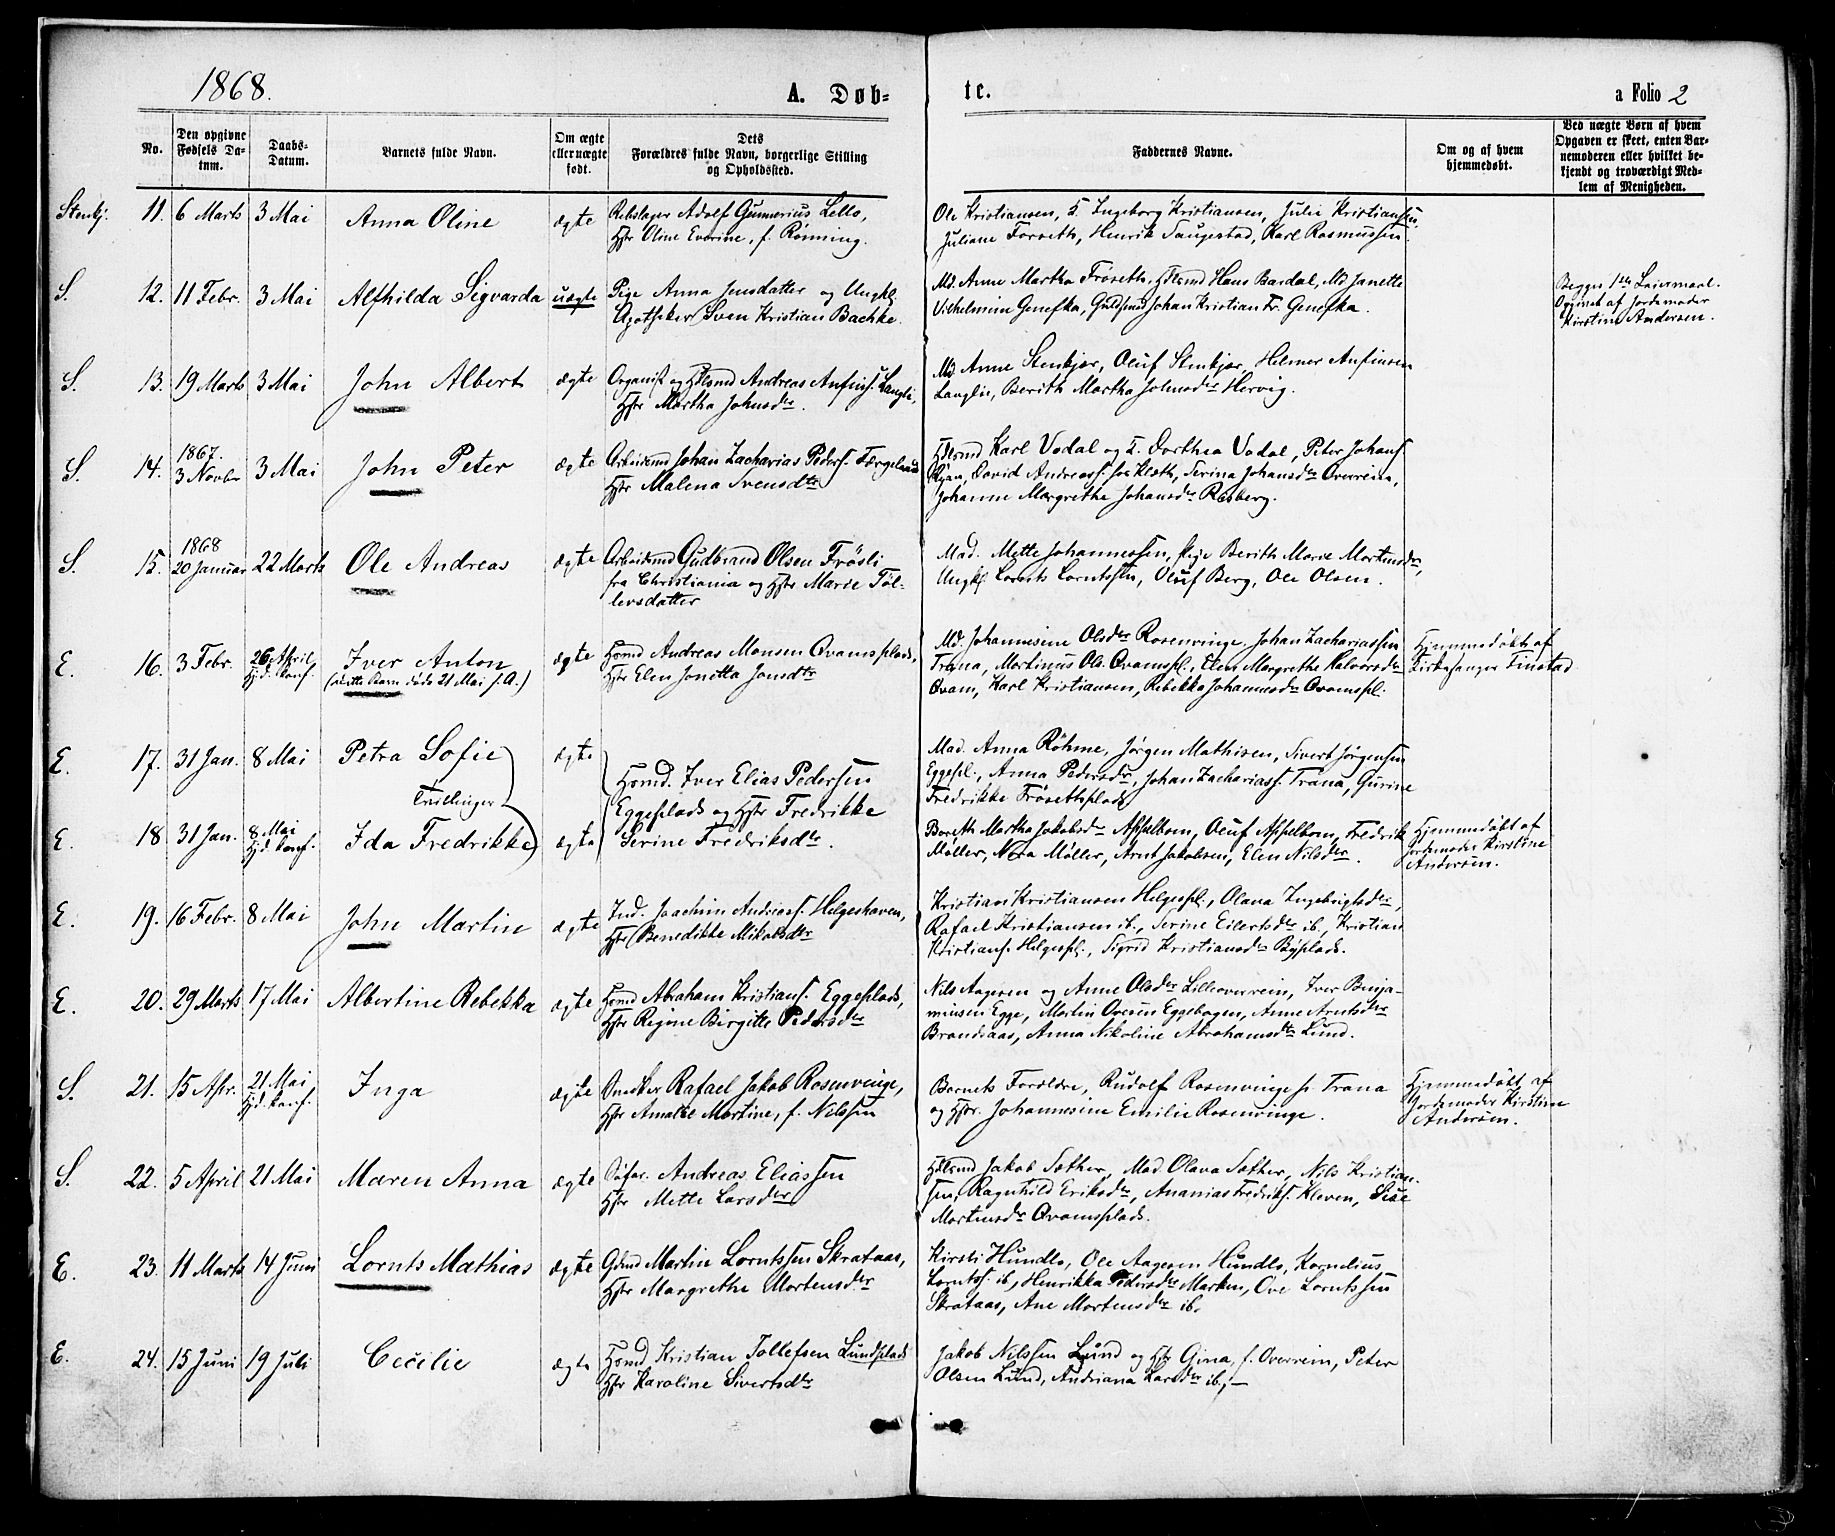 1868.
A. Døb-
te.
a Folio 2
No.
Den opgivne
Fødsels Da-
tum.
Daabs-
Datum.
Barnets fulde Navn.
Om ægte
eller uægte
født.
Dets
Forældres fulde Navn, borgerlige Stilling
og Opholdssted.
Faddernes Navne.
Om og af hvem
hjemmedøbt.
Ved uægte Børn af hvem
Opgaven er skeet, enten Bar-
nemoderen eller hvilket be-
kjendt og troværdigt Med-
lem af Menigheden.
Stenkj. 11. 6 Marts 3 Mai Anna Oline ægte
Rebslager Adolf Gunnerius Lello,
Hstr Oline Everine, f. Rønning.
Ole Kristiansen, Ingeborg Kristiansen, Julie Kristiansen,
Juliane Forseth, Henrik Saugestad, Karl Rasmussen.
S. 12. 11 Febr. 3 Mai Alfhilda Sigvarda uægte
Pige Anna Jensdatter og Ungkl.
Apotheker Sven Kristian Bachke.
Md. Anne Martha Frøseth, Hans Bardal, Md Janette
Vilhelmine Genefka, Johan Kristian Fr. Genefka.
Begges 1ste Leiermaal.
Opgivet af Jordemoder
Kirstine Andersen.
S. 13. 19 Marts 3 Mai John Albert ægte
Organist og Andreas Anfins. Langli,
Hstr Martha Johnsdtr.
Md Anne Stenkjær, Oluf Stenkjær, Helmer Anfinsen
Langlie, Berith Martha Johnsdtr Hervig.
S. 14. 1867.
3 Novbr 3 Mai John Peter ægte
Arbeidsmd Johan Zacharias Peders. Færgeland
Hstr Malena Svensdtr
Karl Vodal og Dorthea Vodal, Peter Johans.
Ryan, David Andreass. Serina Johansdtr Overrein,
Johanne Margrethe Johansdtr Rosberg.
S. 15. 1868
20 Januar 22 Marts Ole Andreas ægte
Arbeidsmd Gudbrand Olsen Frøsli
fra Christiania og Hstr Marie Tøl-
levsdatter
Mad. Mette Johannessen, Pige Berith Marie Mortensdtr,
Ungkl Lornts Lorntssen, Oluf Berg, Ole Olsen.
E. 16. 3 Febr. 26 April
Hjd. konf. Iver Anton ægte
(dette Barn døde 21 Mai s. A.)
Hsmd Andreas Monsen Qvamsplads,
Hstr Elen Jonetta Jonsdtr
Md. Johannesine Olsdtr Rosenvinge, Johan Zachariassen
Trana, Martinus Ols. Qvamspl., Elen Margrethe Halvorsdtr
Qvam, Karl Kristiansen, Rebekka Johannesdtr Qvamspl.
Hjemmedøbt af
Kirkesanger Finstad
E. 17. 31 Jan. 8 Mai Petra Sofie ægte
Tvillinger
Hsmd. Iver Elias Pedersen
Eggesplads og Hstr Fredrikke
Serine Fredriksdtr.
Mad. Anna Röhme, Jørgen Mathisen, Sivert Jørgensen
Eggespl., Anna Pedersdtr, Johan Zachariass. Trana, Gurine
Fredrikke Frösethsplads
E. 18 31 Jan. 8 Mai
Hjd. konf. Ida Fredrikke ægte
Bereth Martha Jakobsdtr Appelbom, Oluf Appelbom, Fredrik
Møller, Nora Møller, Arnt Jakobsen, Elen Nilsdtr.
Hjemmedøbt af
Jordemoder Kirstine
Andersen.
E. 19. 16 Febr. 8 Mai John Martin ægte
Ind. Joachim Andreass. Helgeshaven,
Hstr Benedikte Mikalsdtr
Kristian Kristiansen Helgespl., Olava Ingebrigtsdtr,
Rafael Kristiansen ib., Serine Eilertsdtr ib., Kristian
Kristians. Helgespl., Sigrid Kristiansdtr Byplads.
E. 20. 29 Marts 17 Mai Albertine Rebekka ægte
Hsmd Abraham Kristians. Eggesplads,
Hstr Regine Birgitte Pedersdtr
Nils Aagesen og Anne Olsdtr Lilleoverrein, Iver Benja-
minsen Egge, Martin Ovesen Eggebogen, Anne Arntsdtr
Brandsaas, Anna Nikoline Abrahamsdtr Lund.
S. 21. 15 Apr. 21 Mai
Hjd. konf. Inga ægte
Snedker Rafael Jakob Rosenvinge,
Hstr Amalie Martine, f. Nilssen
Barnets Forældre, Rudolf Rosenvinge Trana
og Hstr. Johannesine Emilie Rosenvinge.
Hjemmedøbt af
Jordemoder Kirstine
Andersen.
S. 22. 5 April 21 Mai Maren Anna ægte
Søfar. Andreas Eliassen
Hstr Mette Larsdtr
Jakob Sæther, Mad. Olava Sæther, Nils Kristian-
sen, Ragnhild Eriksdtr, Ananias Fredriks. Kleven, Sise
Mortensdtr Qvamsplads.
E. 23. 11 Marts 14 Juni Lornts Mathias ægte
Gdmd Martin Lorntssen Skrataas,
Hstr Margrethe Mortensdtr
Kirsti Hundlo, Ole Aagesen Hundlo, Kornelius
Lorntss. ib., Henrikka Pedersdtr Marken, Ove Lorntssen
Skrataas, Ane Mortensdtr ib.
E. 24. 15 Juni 19 Juli Cecilie ægte
Hsmd Kristian Tollefsen Lundsplads
Hstr Karoline Sivertsdtr
Jakob Nilssen Lund og Hstr Gina, f. Overrein, Peter
Olsen Lund, Andriana Larsdtr ib., —